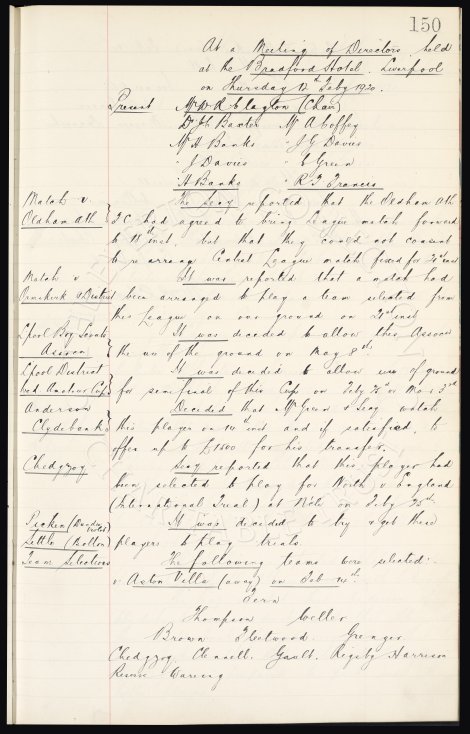 150
At a Meeting of Directors held
at the Bradford Hotel. Liverpool
on Thursday 12th Feby 1920.
Present Mr W R Clayton (Chair)
Dr J C Baxter Mr A Coffey
Mr H Banks " J G Davies
" J Davies " E Green
" A Banks " R T Francis
Match v.
Oldham Ath
The Secy reported that the Oldham Ath
F C. had agreed to bring League match forward
to 11th inst. but that they could not consent
to re arrange Central League match fixed for 21st inst
Match v
Ormskirk & District
It was reported that a match had
been arranged to play a team selected from
this League on our ground on 21st inst
Lpool Boy Scouts
Assocn
It was decided to allow this Associ
the use of the ground on May 8th
Lpool District
Amateur Cup
It was decided to allow use of ground
for semi final of this Cup on Feby 25th or Mar 3rd
Anderson
Clydebank
Decided that Mr Green & Secy watch
this player on 14th inst and if satisfied, to
offer up to £1500 for his transfer.
Chedgzoy
Secy reported that this player had
been selected to play for North v England
(International Trial) at N'cle on Feby 25th
Picken (Dundee
Settle (Bolton)
It was decided to try & get these
players to play trials
Team Selections
The following teams were selected:-
v Aston Villa (away) on Feb 14th
Fern
Thompson Weller
Brown Fleetwood. Grenyer
Chedgzoy Clennell. Gault. Rigsby Harrison
Reserve Wareing